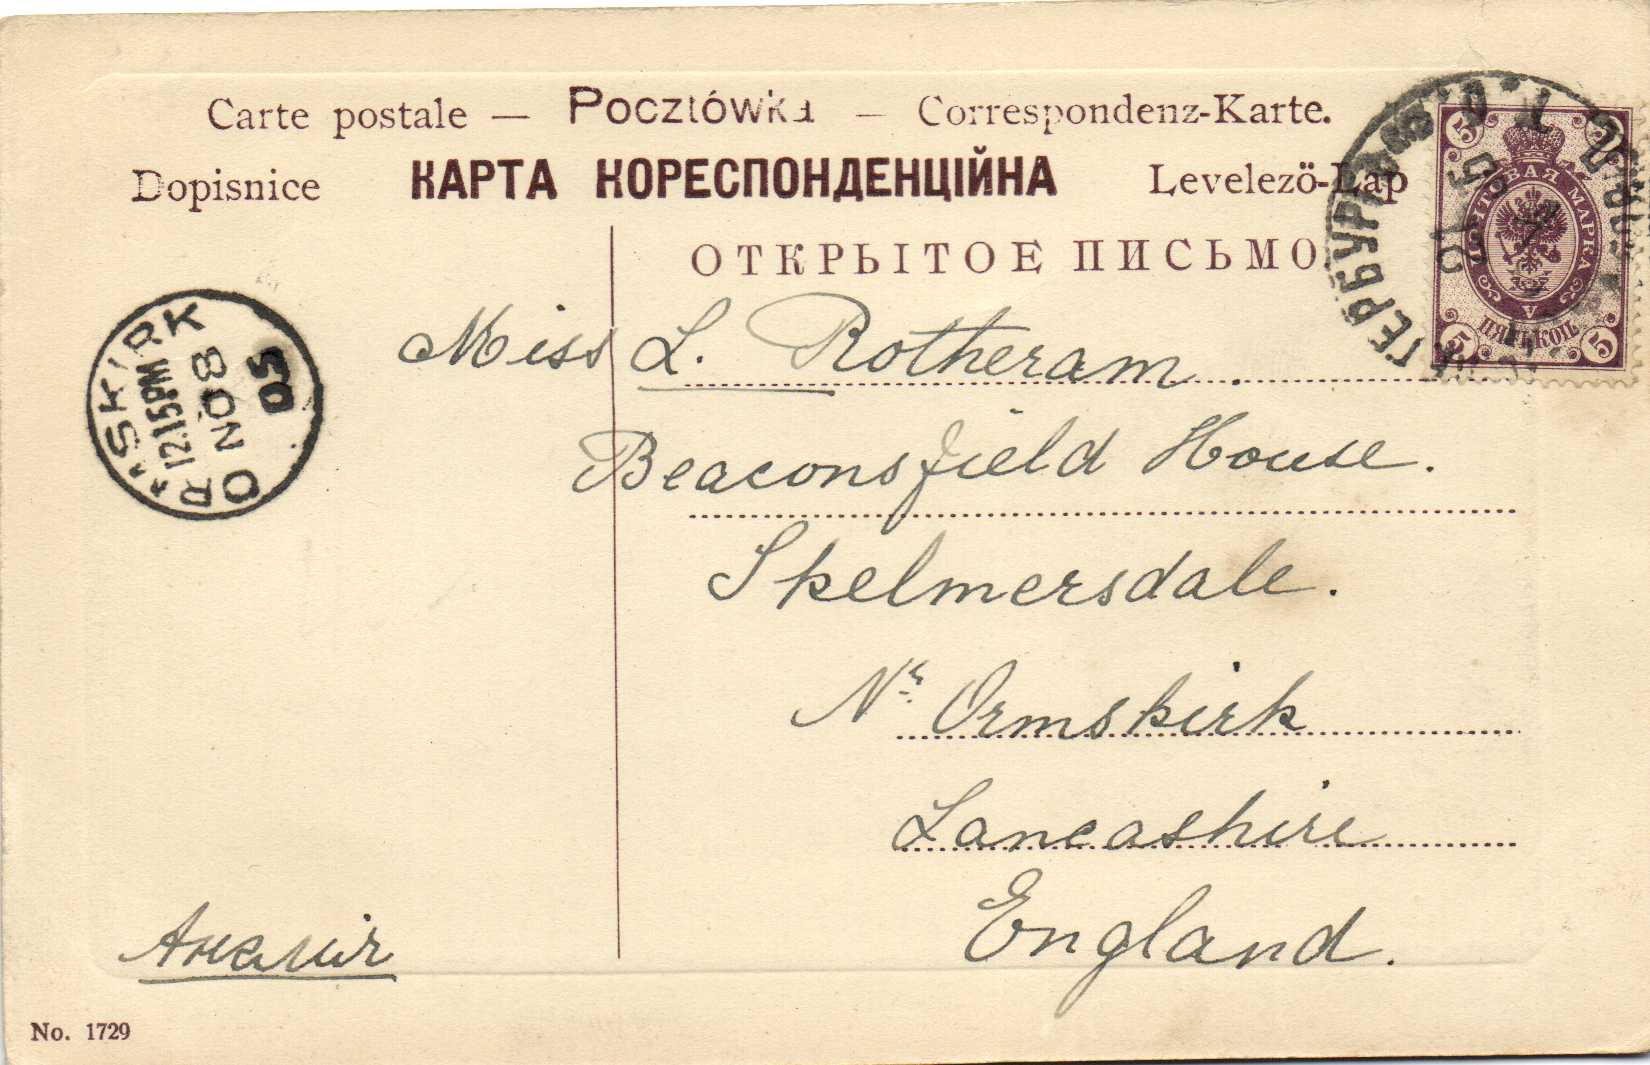 Carte postale — Pocztówka — Correspondenz-Karte.
Dopisnice КАРТА КОРЕСПОНДЕНЦІЙНА Levelező-Lap
ОТКРЫТОЕ ПИСЬМО
5 5
ПОЧТОВАЯ МАРКА
ПЯТЬ КОП
5 5
ORMSKIRK
12.15PM
NO 8
05
Miss L. Rotheram.
Beaconsfield House.
Skelmersdale.
Nr. Ormskirk
Lancashire
England.
Англія
No. 1729